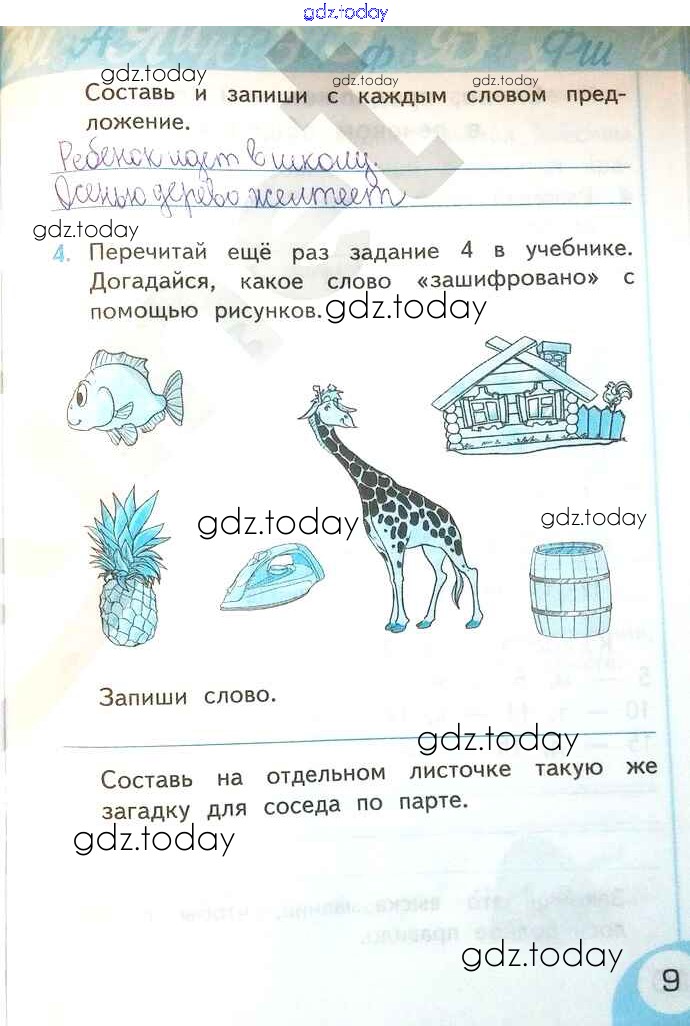 gdz.today
gdz.today gdz.today gdz.today
Составь и запиши с каждым словом пред-
ложение.
Ребенок идет в школу.
Осенью дерево желтеет
gdz.today
4. Перечитай ещё раз задание 4 в учебнике.
Догадайся, какое слово «зашифровано» с
помощью рисунков. gdz.today
gdz.today
gdz.today
Запиши слово.
gdz.today
Составь на отдельном листочке такую же
загадку для соседа по парте.
gdz.today
gdz.today
9